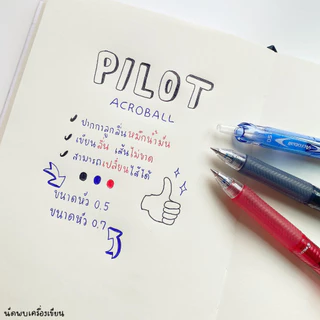 PILOT
ACROBALL
ปากกาลูกลื่นหมึกน้ำมัน
เขียนลื่น เส้นไม่ขาด
สามารถเปลี่ยนไส้ได้
ขนาดหัว 0.5
ขนาดหัว 0.7
นัดพบเครื่องเขียน